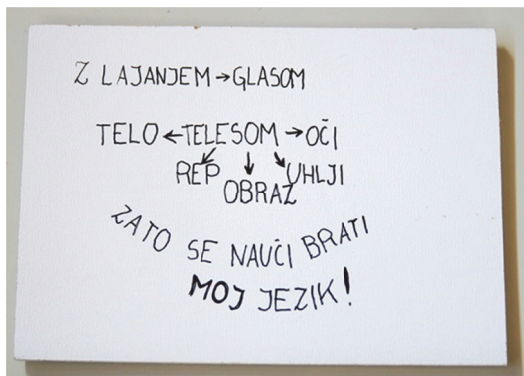 Z LAJANJEM → GLASOM
TELO ← TELESOM → OČI
REP OBRAZ UHLJI
ZATO SE NAUČI BRATI
MOJ JEZIK!